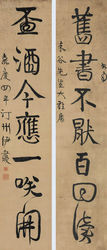 舊書不厭百回
未谷先生大雅屬
盃酒今應一咲開
嘉慶四年汀州伊秉綬